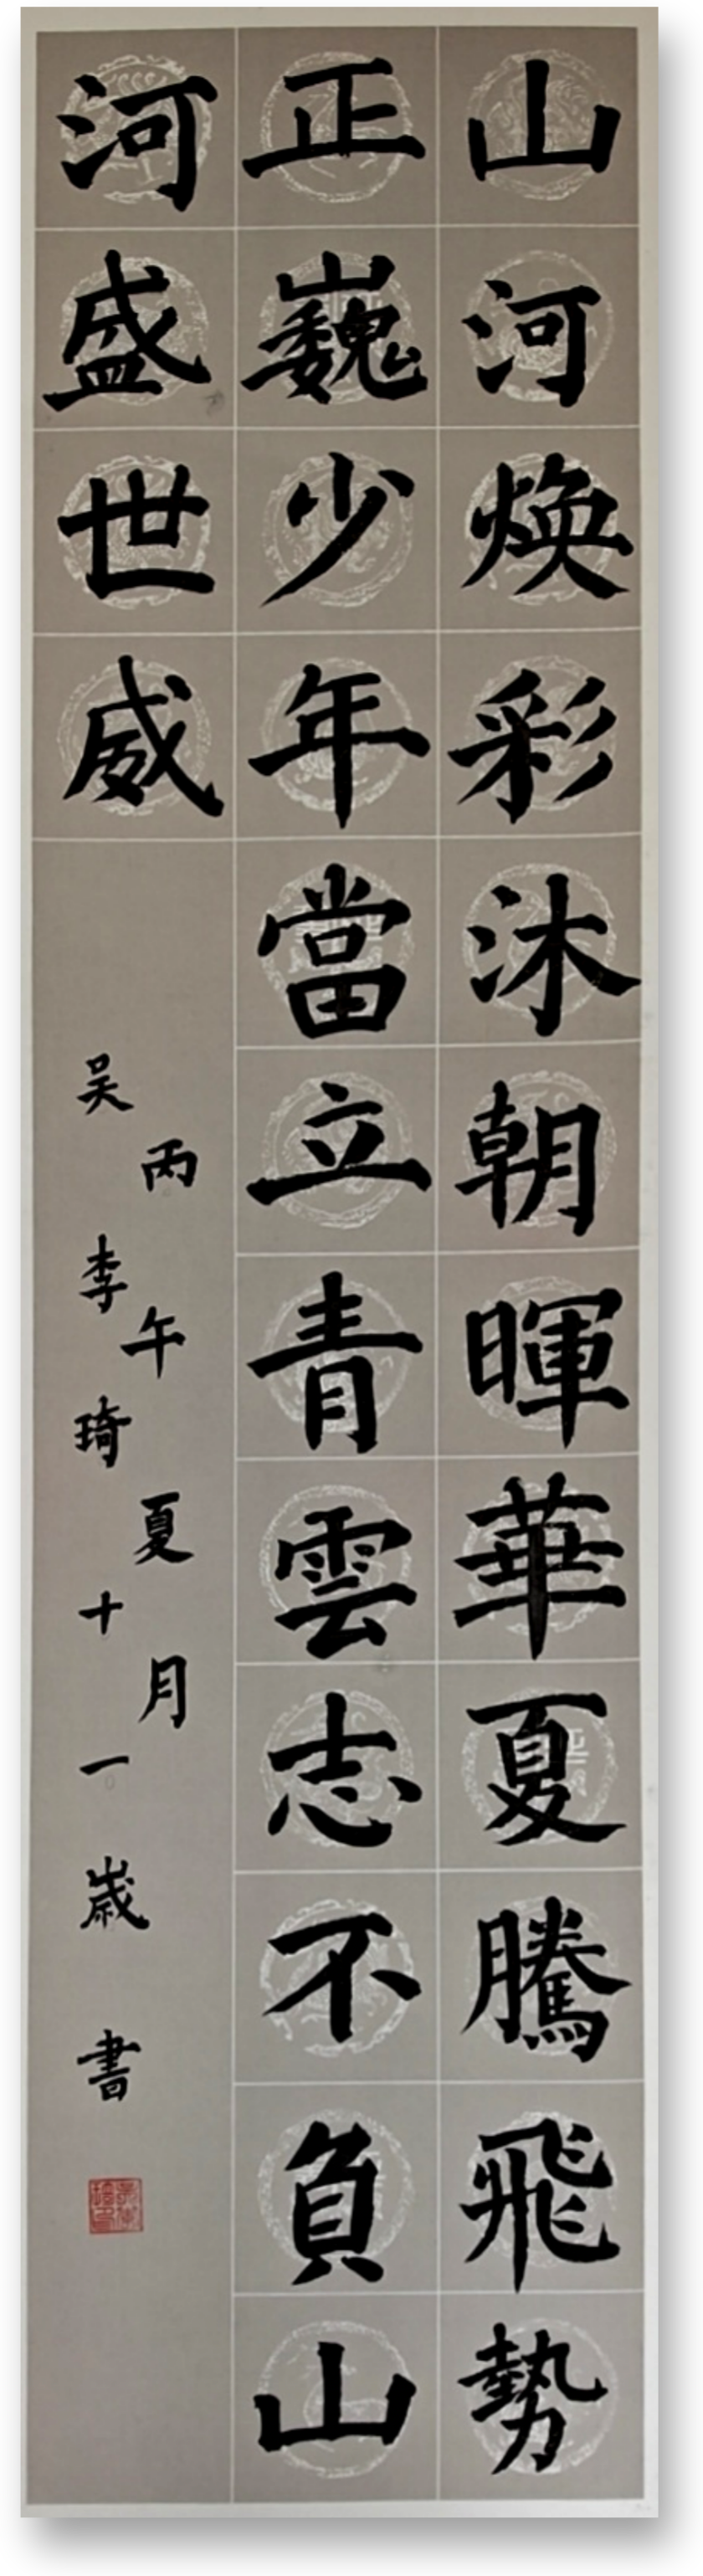 山河焕彩沐朝暉華夏騰飛勢
正巍少年當立青雲志不負山
河盛世威
丙午夏月
吴李琦十一歲書